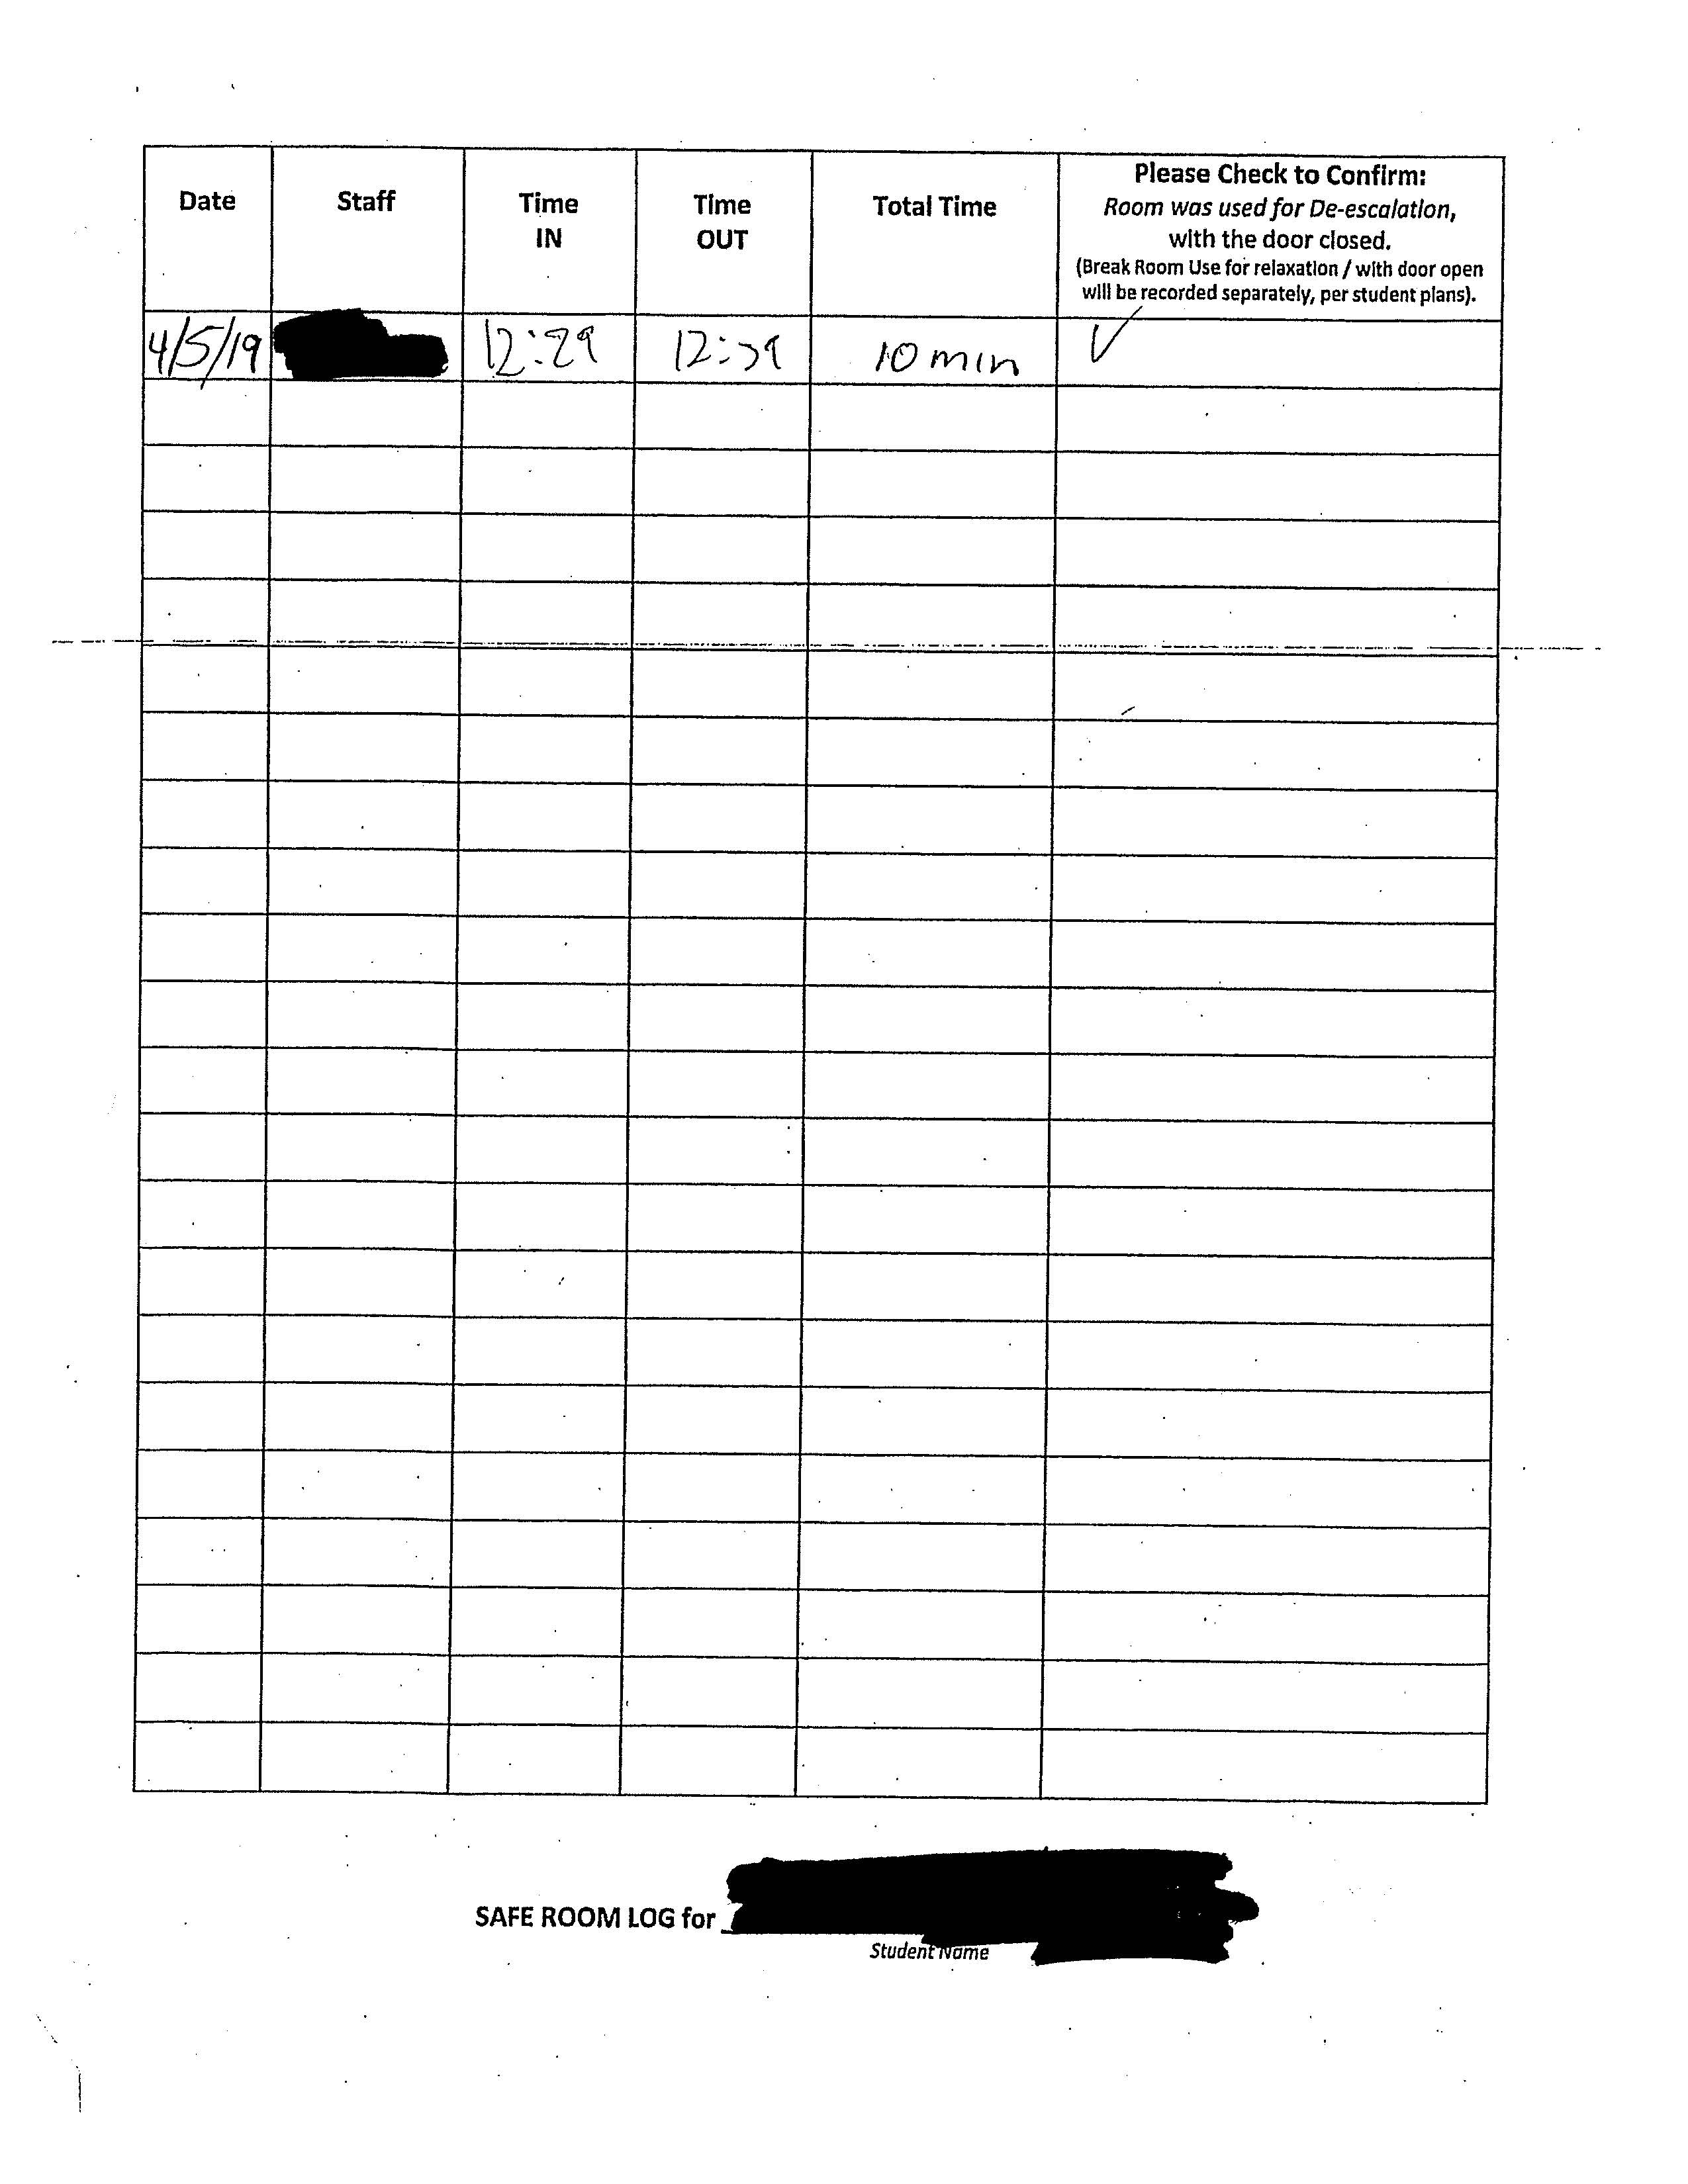 Date Staff Time IN Time OUT Total Time
Please Check to Confirm:
Room was used for De-escalation,
with the door closed.
(Break Room Use for relaxation / with door open
will be recorded separately, per student plans).
4/5/19 12:29 12:39 10 min ✓
SAFE ROOM LOG for
Student Name